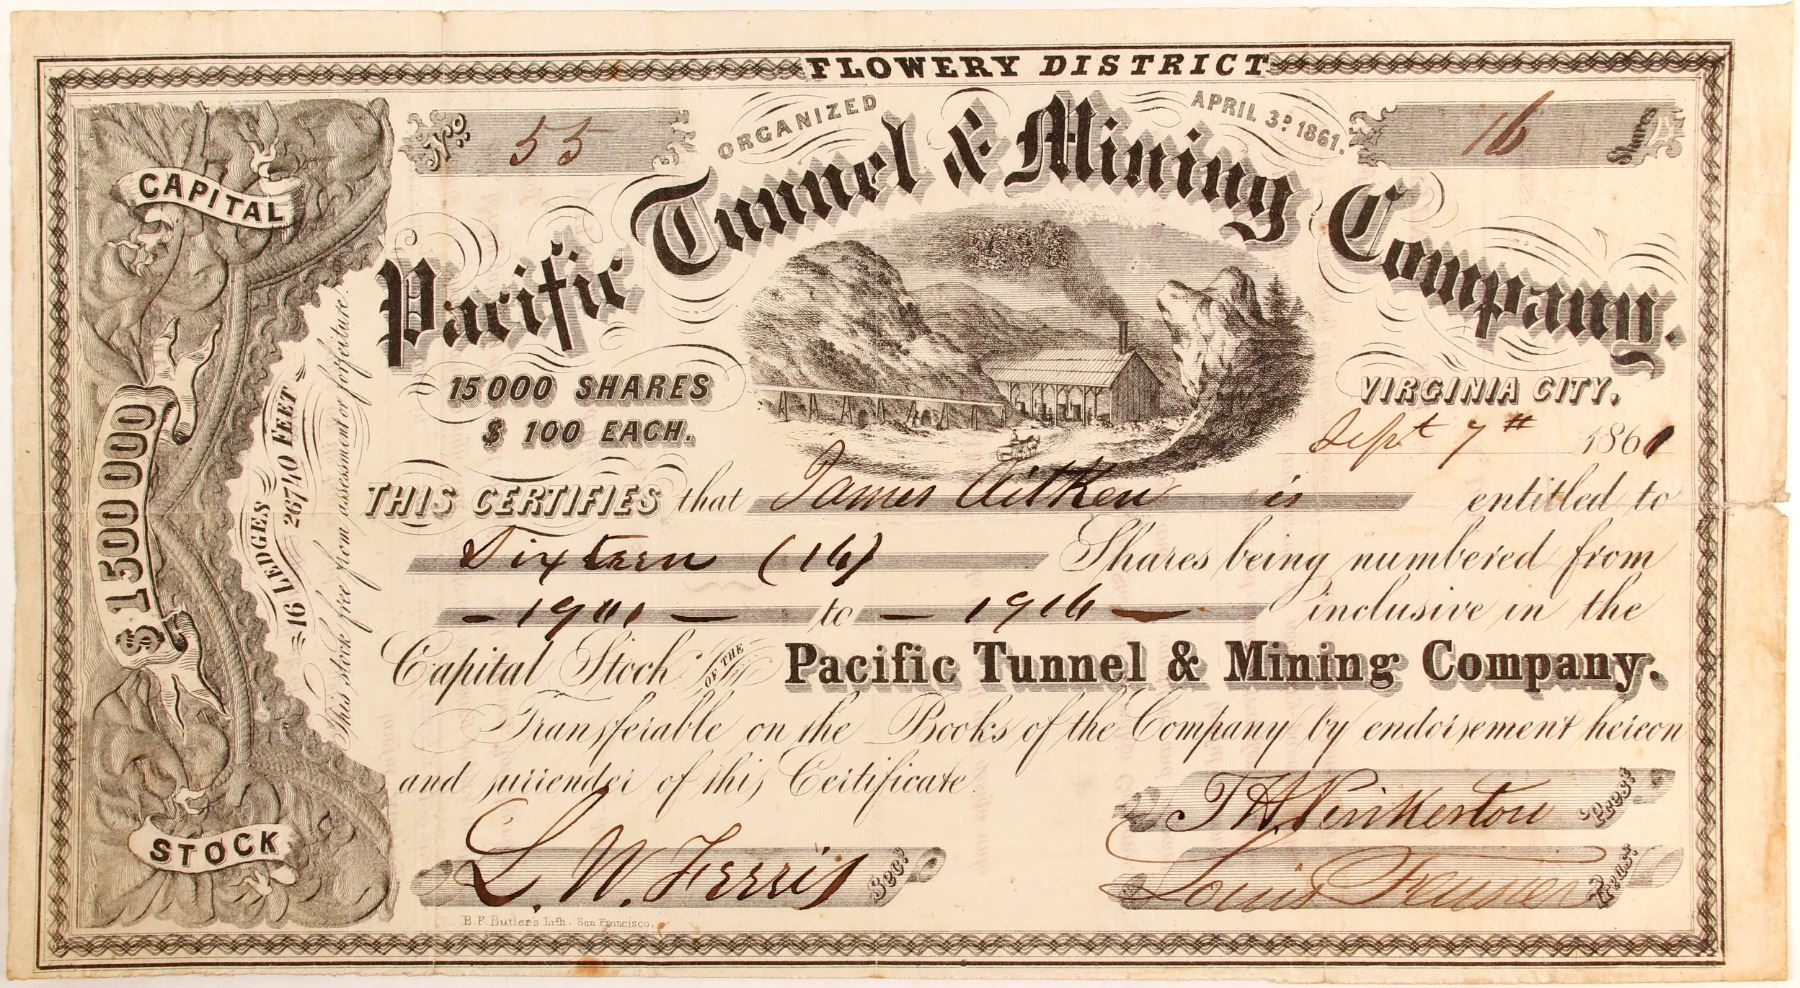 FLOWERY DISTRICT
No. 55
ORGANIZED APRIL 3D 1861.
16 Shares
Pacific Tunnel & Mining Company.
CAPITAL
$1500000
STOCK
16 LEDGES 26740 FEET
This stock free from assessment or forfeiture.
15000 SHARES
$ 100 EACH.
VIRGINIA CITY,
Sept 7th 1861
THIS CERTIFIES that James Aitken is entitled to
Sixteen (16) Shares being numbered from
- 1901 - to - 1916 - inclusive in the
Capital Stock OF THE Pacific Tunnel & Mining Company.
Transferable on the Books of the Company by endorsement hereon
and surrender of this Certificate.
T H Pinkerton Pres:
L. W. Ferris Sec:
Louis Treas:
B. F. Butler's Lith. San Francisco.